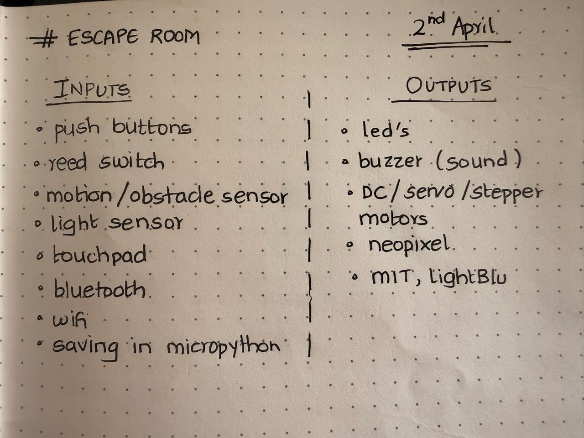 # ESCAPE ROOM
2nd April
INPUTS
• push buttons
• reed switch
• motion/obstacle sensor
• light sensor
• touchpad
• bluetooth
• wifi
• saving in micropython
OUTPUTS
• led's
• buzzer (sound)
• DC/servo/stepper
motors
• neopixel
• MIT, LightBlu